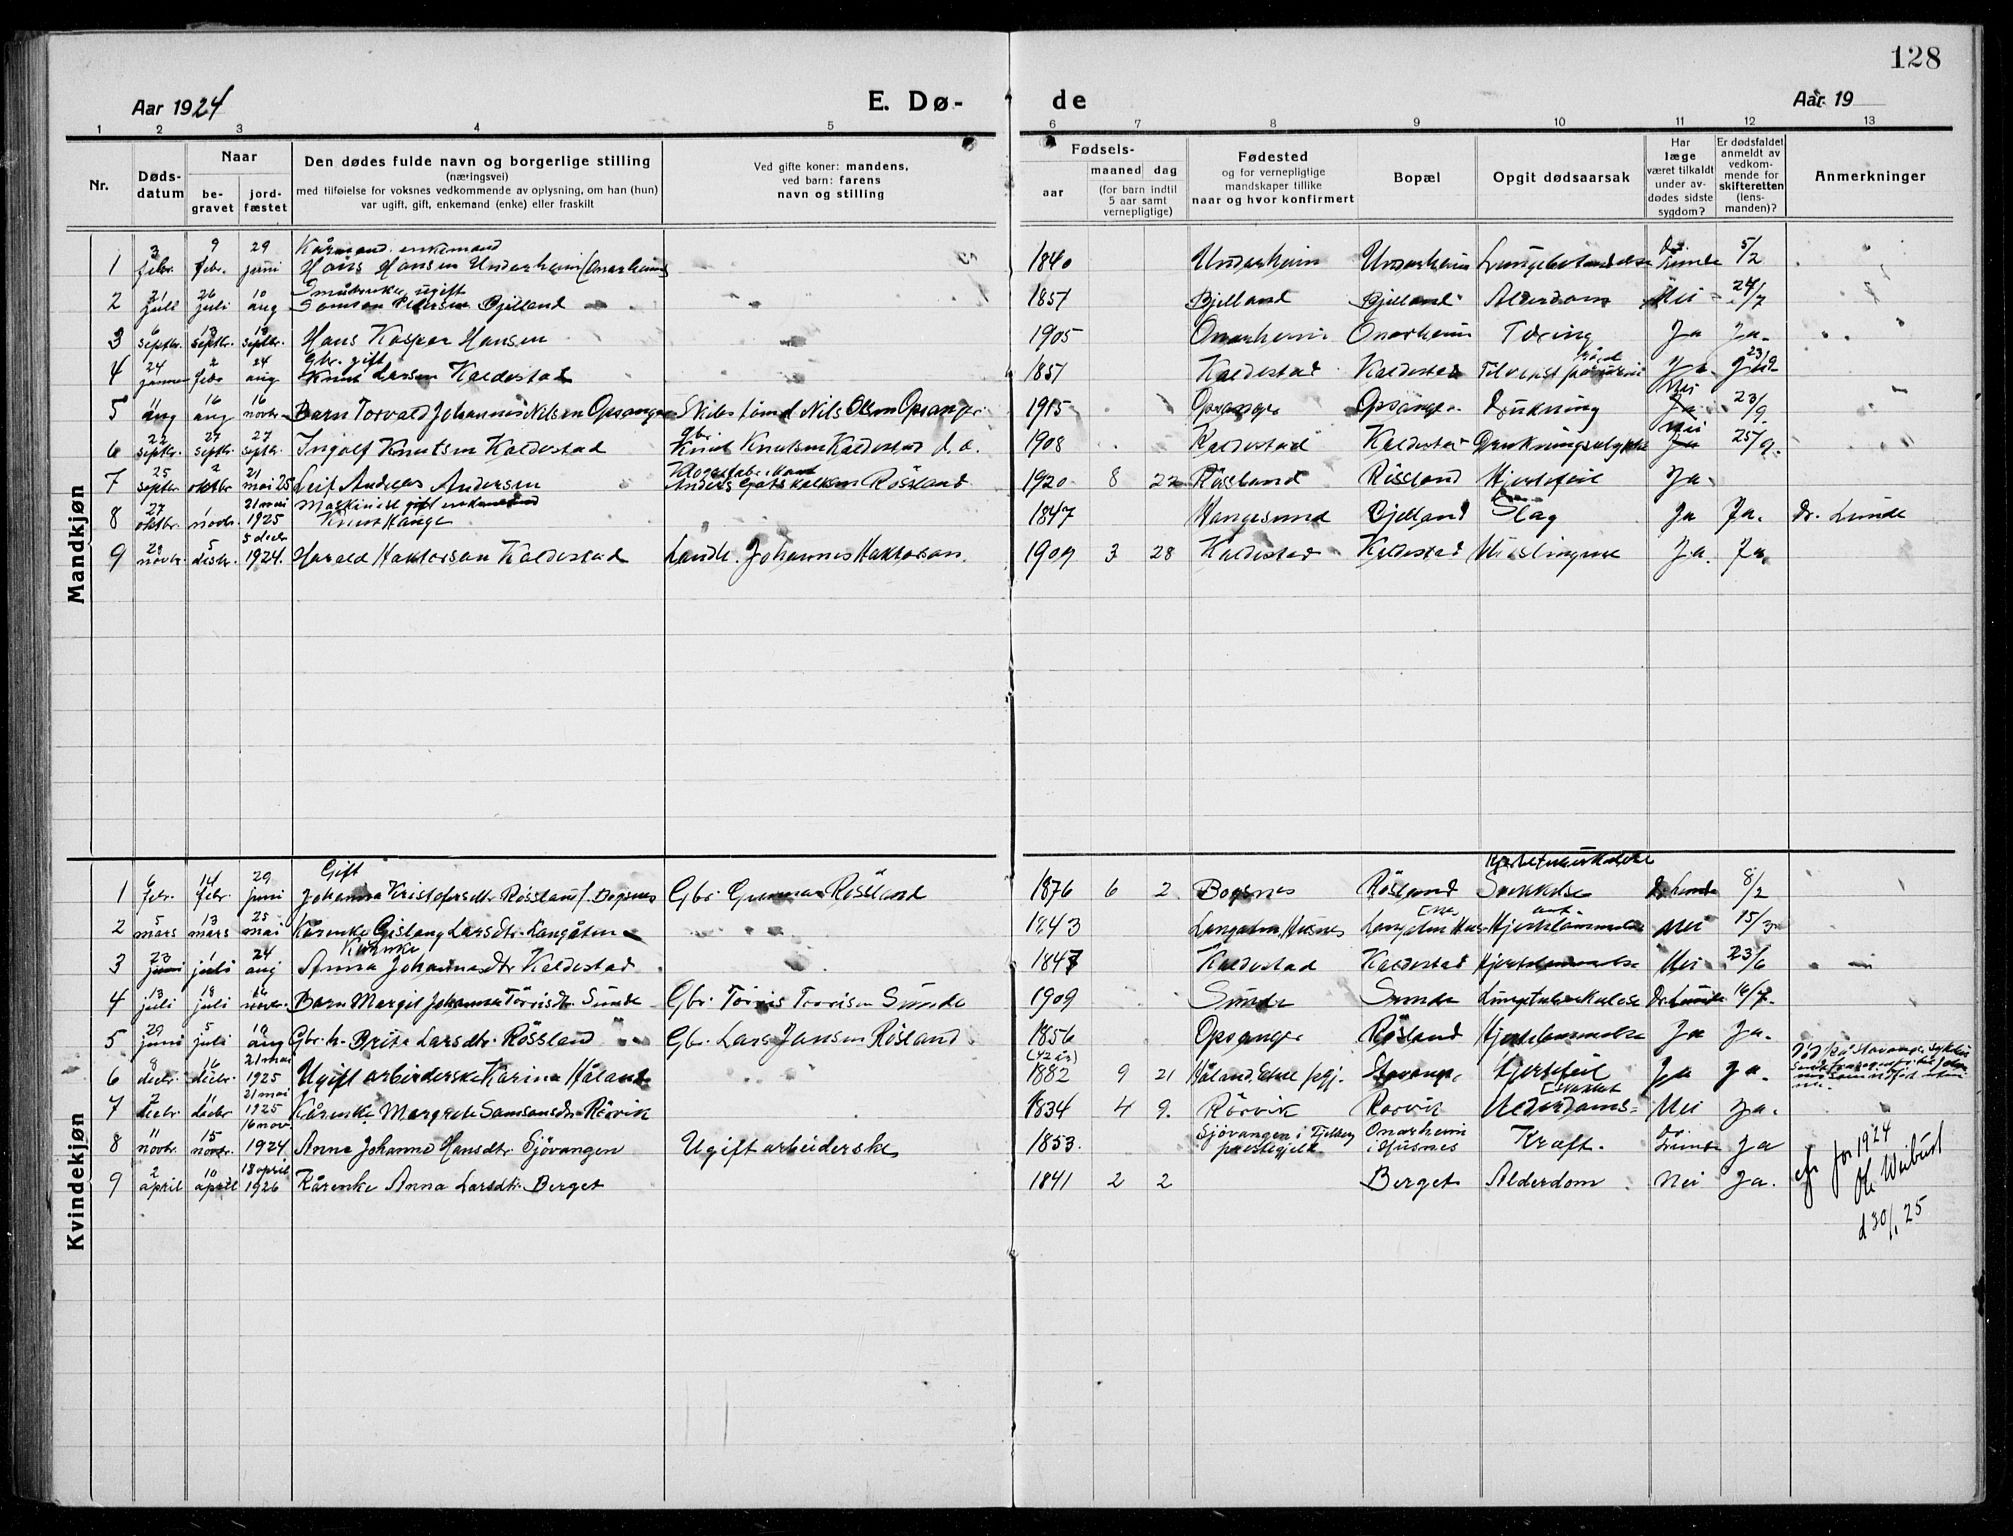 128
Aar 1924 E. Dø- de Aar 19
1 2 3 4 5 6 7 8 9 10 11 12 13
Nr.
Døds-
datum
Naar
be-
gravet
jord-
fæstet
Den dødes fulde navn og borgerlige stilling
(næringsvei)
med tilføielse for voksnes vedkommende av oplysning, om han (hun)
var ugift, gift, enkemand (enke) eller fraskilt
Ved gifte koner: mandens,
ved barn: farens
navn og stilling
Fødsels-
aar
maaned dag
(for barn indtil
5 aar samt
vernepligtige)
Fødested
og for vernepligtige
mandskaper tillike
naar og hvor konfirmert
Bopæl
Opgit dødsaarsak
Har
læge
været tilkaldt
under av-
dødes sidste
sygdom?
Er dødsfaldet
anmeldt av
vedkom-
mende for
skifteretten
(lens-
manden)?
Anmerkninger
Mandkjøn
1 3 febr. 9 febr. 29 juni Kårmand enkemand Hans Hansen Underheim (Onarheim) 1840 Underheim Underheim Dr. Lunde 5/2
2 21 juli 26 juli 10 aug ugift Samson Pedersen Bjelland 1851 Bjelland Bjelland Alderdom Nei 24/7
3 6 septbr. 13 septbr. 13 septbr. Hans Kaspar Hansen 1905 Onarheim Onarheim Tæring Ja Ja.
4 24 januar 2 febr 24 aug Gbr. gift Knut Larsen Kaldestad 1851 Kaldestad Kaldestad Ja.
5 11 aug 16 aug 16 novbr. Barn Torvald Johannes Nilsen Opsanger Nils Olsen Opsanger 1915 Opsanger Opsanger Drukning Nei 23/9
6 22 septbr. 27 septbr. 27 septbr. Ingolf Knutsen Kaldestad Gbr. Knut Knutsen Kaldestad 1908 Kaldestad Kaldestad Drukningsulykke Nei 25/9.
7 25 septbr 2 oktbr 21 mai 25 Leif Andreas Andersen Røssland 1920 8 22 Røssland Røssland Hjertefeil Ja.
8 27 oktbr. 1 novbr. 21 mai 1925 Maskinist gift enkemand Knut Hauge 1847 Haugesund Bjelland Slag Ja Ja. Dr. Lunde
9 29 novbr. 5 desbr. 5 decbr 1924. Harald Haktorson Kaldestad Landh. Johannes Haktorson. 1909 3 28 Kaldestad Kaldestad Ja. Ja.
Kvindekjøn
1 6 febr. 14 febr. 29 juni Gift Johanna Kristofersdtr Røssland f. Bogsnes Gbr. Røssland 1876 6 2 Bogsnes Røsland Svækkelse Dr Lunde 8/2
2 5 mars 13 mars 25 mai Kårenke Gislaug Larsdtr. Langåten 1843 Husnes Nei 15/3
3 23 juni 1 juli 24 aug Kårenke Anna Johannesdtr Kaldestad 1847 Kaldestad Kaldestad Hjertelammelse Nei 23/6
4 13 juli 18 juli 16 novbr. Barn Margit Johanna Torrisdtr Sunde Gbr. Torris Torrisen Sunde 1909 Sunde Sunde Lungetuberkulose Dr Lunde 16/7.
5 29 juni 5 juli 10 aug Gbr. k. Brita Larsdtr. Røssland Gbr. Lars Jansen Røsland 1856 Opsanger Røsland Hjertelammelse Ja Ja.
6 8 decbr. 16 decbr. 21 mai 1925 Ugift arbeiderske Karina Håland (42 år) 1882 9 21 Håland, Etne Stavanger Hjertefeil Ja Ja.
7 2 decbr 11 decbr 21 mai 1925 Kårenke Margrete Samsonsdtr Rørvik 1834 4 9. Rørvik Rørvik Alderdoms- Nei Ja.
8 11 novbr. 15 novbr. 16 nov. 1924 Anna Johanna Hansdtr. Sjövangen Ugift arbeiderske 1853. Sjövangen i Fjelberg prestegjeld Onarheim i Husnes Kræft. Dr. Lunde Ja
9 2 april 10 april 18 april 1926 Kårenke Anna Larsdtr. Berget 1841 2 2 Berget Alderdom Nei Ja.
for 1924
d 30/1 25